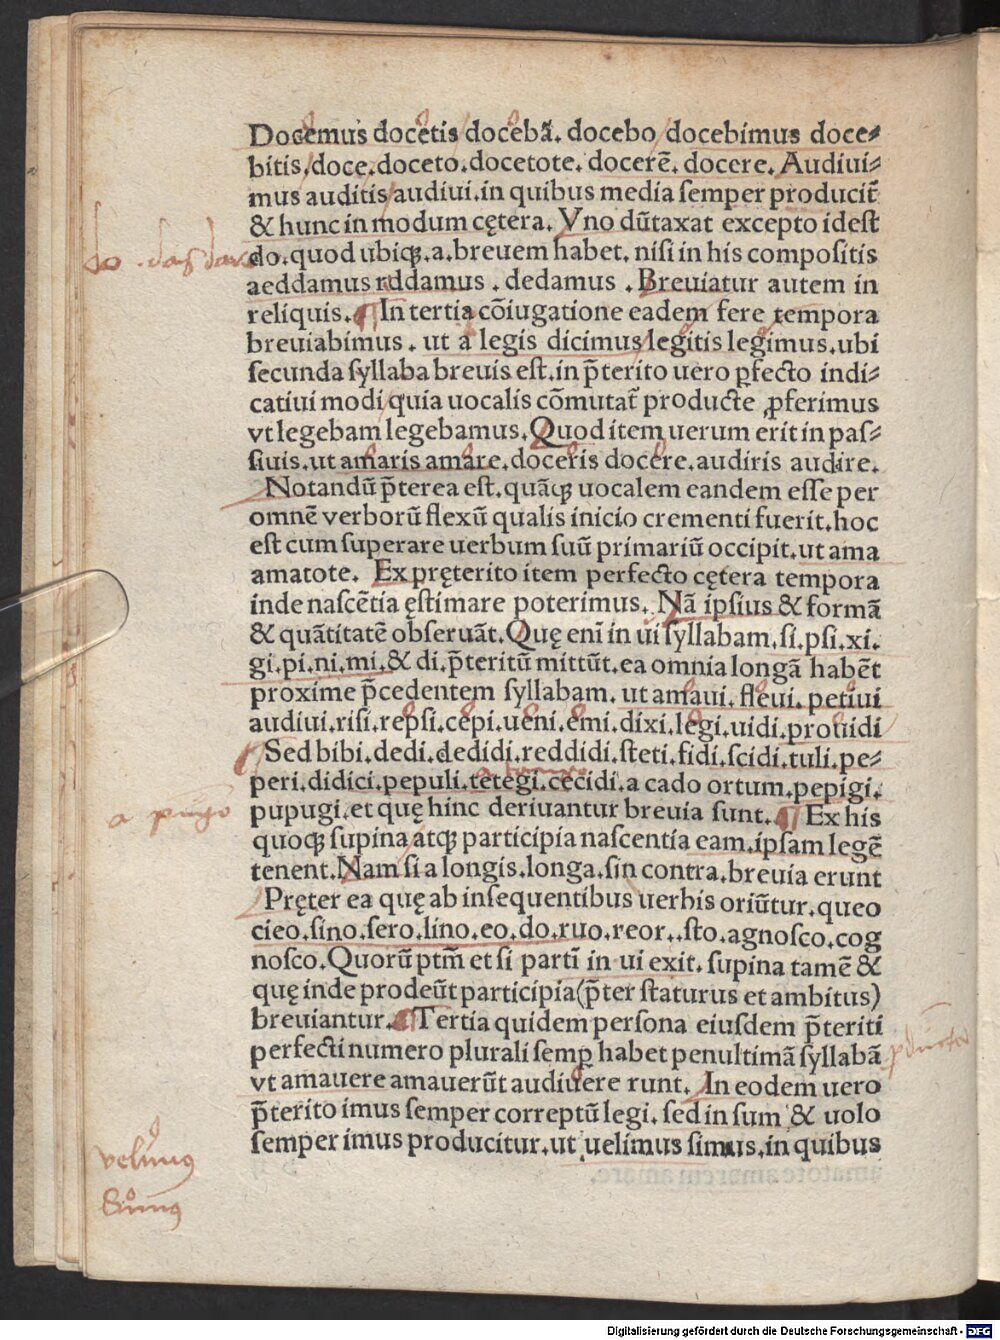 Docemus docetis docebā. docebo docebimus doce⸗
bitis, doce. doceto. docetote. docerē. docere. Audiui⸗
mus auditis audiui. in quibus media semper producit̄
& hunc in modum cętera. Vno dūtaxat excepto idest
do. das dare
do. quod ubiqꝫ. a. breuem habet. nisi in his compositis
aeddamus rddamus . dedamus . Breuiatur autem in
reliquis. ¶ In tertia cōiugatione eadem fere tempora
breuiabimus . ut a legis dicimus legitis legimus. ubi
secunda syllaba breuis est. in p̄terito uero ꝑfecto indi⸗
catiui modi quia uocalis cōmutat̄ producte ꝓferimus
vt legebam legebamus. Quod item uerum erit in pas⸗
siuis. ut amaris amare. doceris docere. audiris audire.
Notandū p̄terea est. quāqꝫ uocalem eandem esse per
omnē verborū flexū qualis inicio crementi fuerit. hoc
est cum superare uerbum suū primariū occipit. ut ama
amatote. Ex pręterito item perfecto cętera tempora
inde nascētia ęstimare poterimus. Nā ipsius & formā
& quātitatē obseruāt. Quę enī in ui syllabam. si. psi. xi.
gi. pi. ni. mi. & di. p̄teritū mittūt. ea omnia longā habēt
proxime p̄cedentem syllabam. ut amaui. fleui. petiui
audiui. risi. repsi. cepi. ueni. emi. dixi. legi. uidi. prouidi
Sed bibi. dedi. dedidi. reddidi. steti. fidi. scidi. tuli. pe⸗
peri. didici. pepuli. tetegi. cecidi. a cado ortum. pepigi.
a pungo
pupugi. et quę hinc deriuantur breuia sunt. ¶ Ex his
quoqꝫ supina atqꝫ participia nascentia eam. ipsam legē
tenent. Nam si a longis. longa. sin contra. breuia erunt
Pręter ea quę ab insequentibus uerbis oriūtur. queo
cieo. sino. sero. lino. eo. do. ruo. reor. . sto. agnosco. cog
nosco. Quorū ptm̄ et si partī in ui exit. supina tamē &
quę inde prodeūt participia (p̄ter staturus et ambitus)
breuiantur. ¶ Tertia quidem persona eiusdem p̄teriti
perfecti numero plurali semꝑ habet penultimā syllabā
vt amauere amauerūt audiuere runt. In eodem uero
p̄terito imus semper correptū legi. sed in sum & uolo
semper imus producitur. ut uelimus simus. in quibus
velimus
Simus
Digitalisierung gefördert durch die Deutsche Forschungsgemeinschaft - DFG